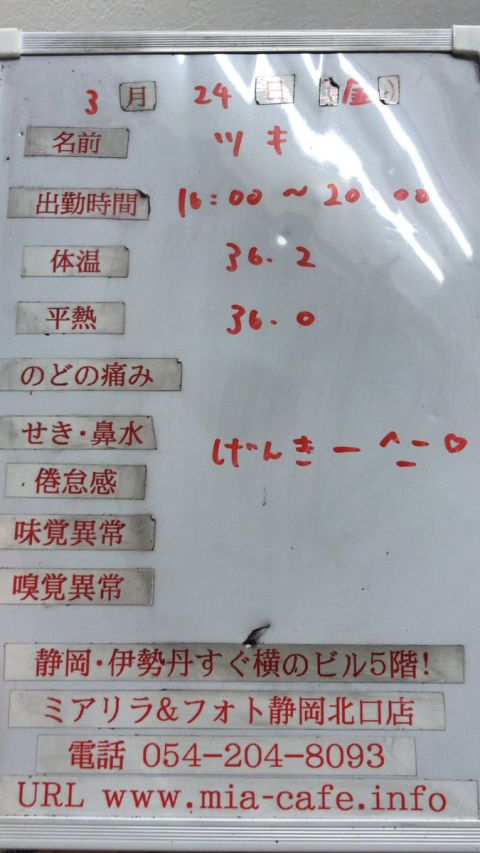 3月 24日 (金)
名前 ツキ
出勤時間 16:00~20:00
体温 36.2
平熱 36.0
のどの痛み
せき・鼻水 げんきー^_-♡
倦怠感
味覚異常
嗅覚異常
静岡・伊勢丹すぐ横のビル5階!
ミアリラ&フォト静岡北口店
電話 054-204-8093
URL www.mia-cafe.info